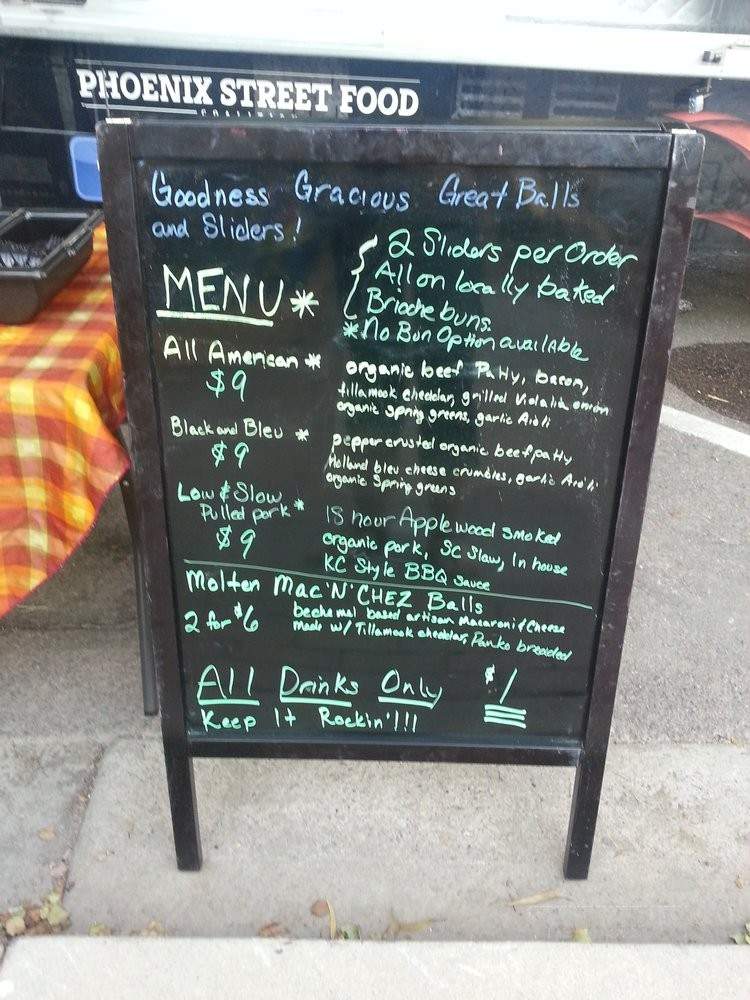 PHOENIX STREET FOOD
COALITION
Goodness Gracious Great Balls
and Sliders!
2 Sliders per Order
All on locally baked
Brioche buns.
*No Bun Option available
MENU*
All American *
$9
organic beef Patty, bacon,
tillamook cheddar, grilled Vidalia onion
organic spring greens, garlic Aioli
Black and Bleu *
$9
pepper crusted organic beef patty
Holland bleu cheese crumbles, garlic Aioli
organic Spring greens
Low & Slow
Pulled pork *
$9
18 hour Applewood smoked
organic pork, SC Slaw, In house
KC Style BBQ Sauce
Molten Mac'N'CHEZ Balls
2 for $6
bechamel based artisan Macaroni & Cheese
made w/ Tillamook cheddar, Panko breaded
All Drinks Only $1
Keep It Rockin'!!!